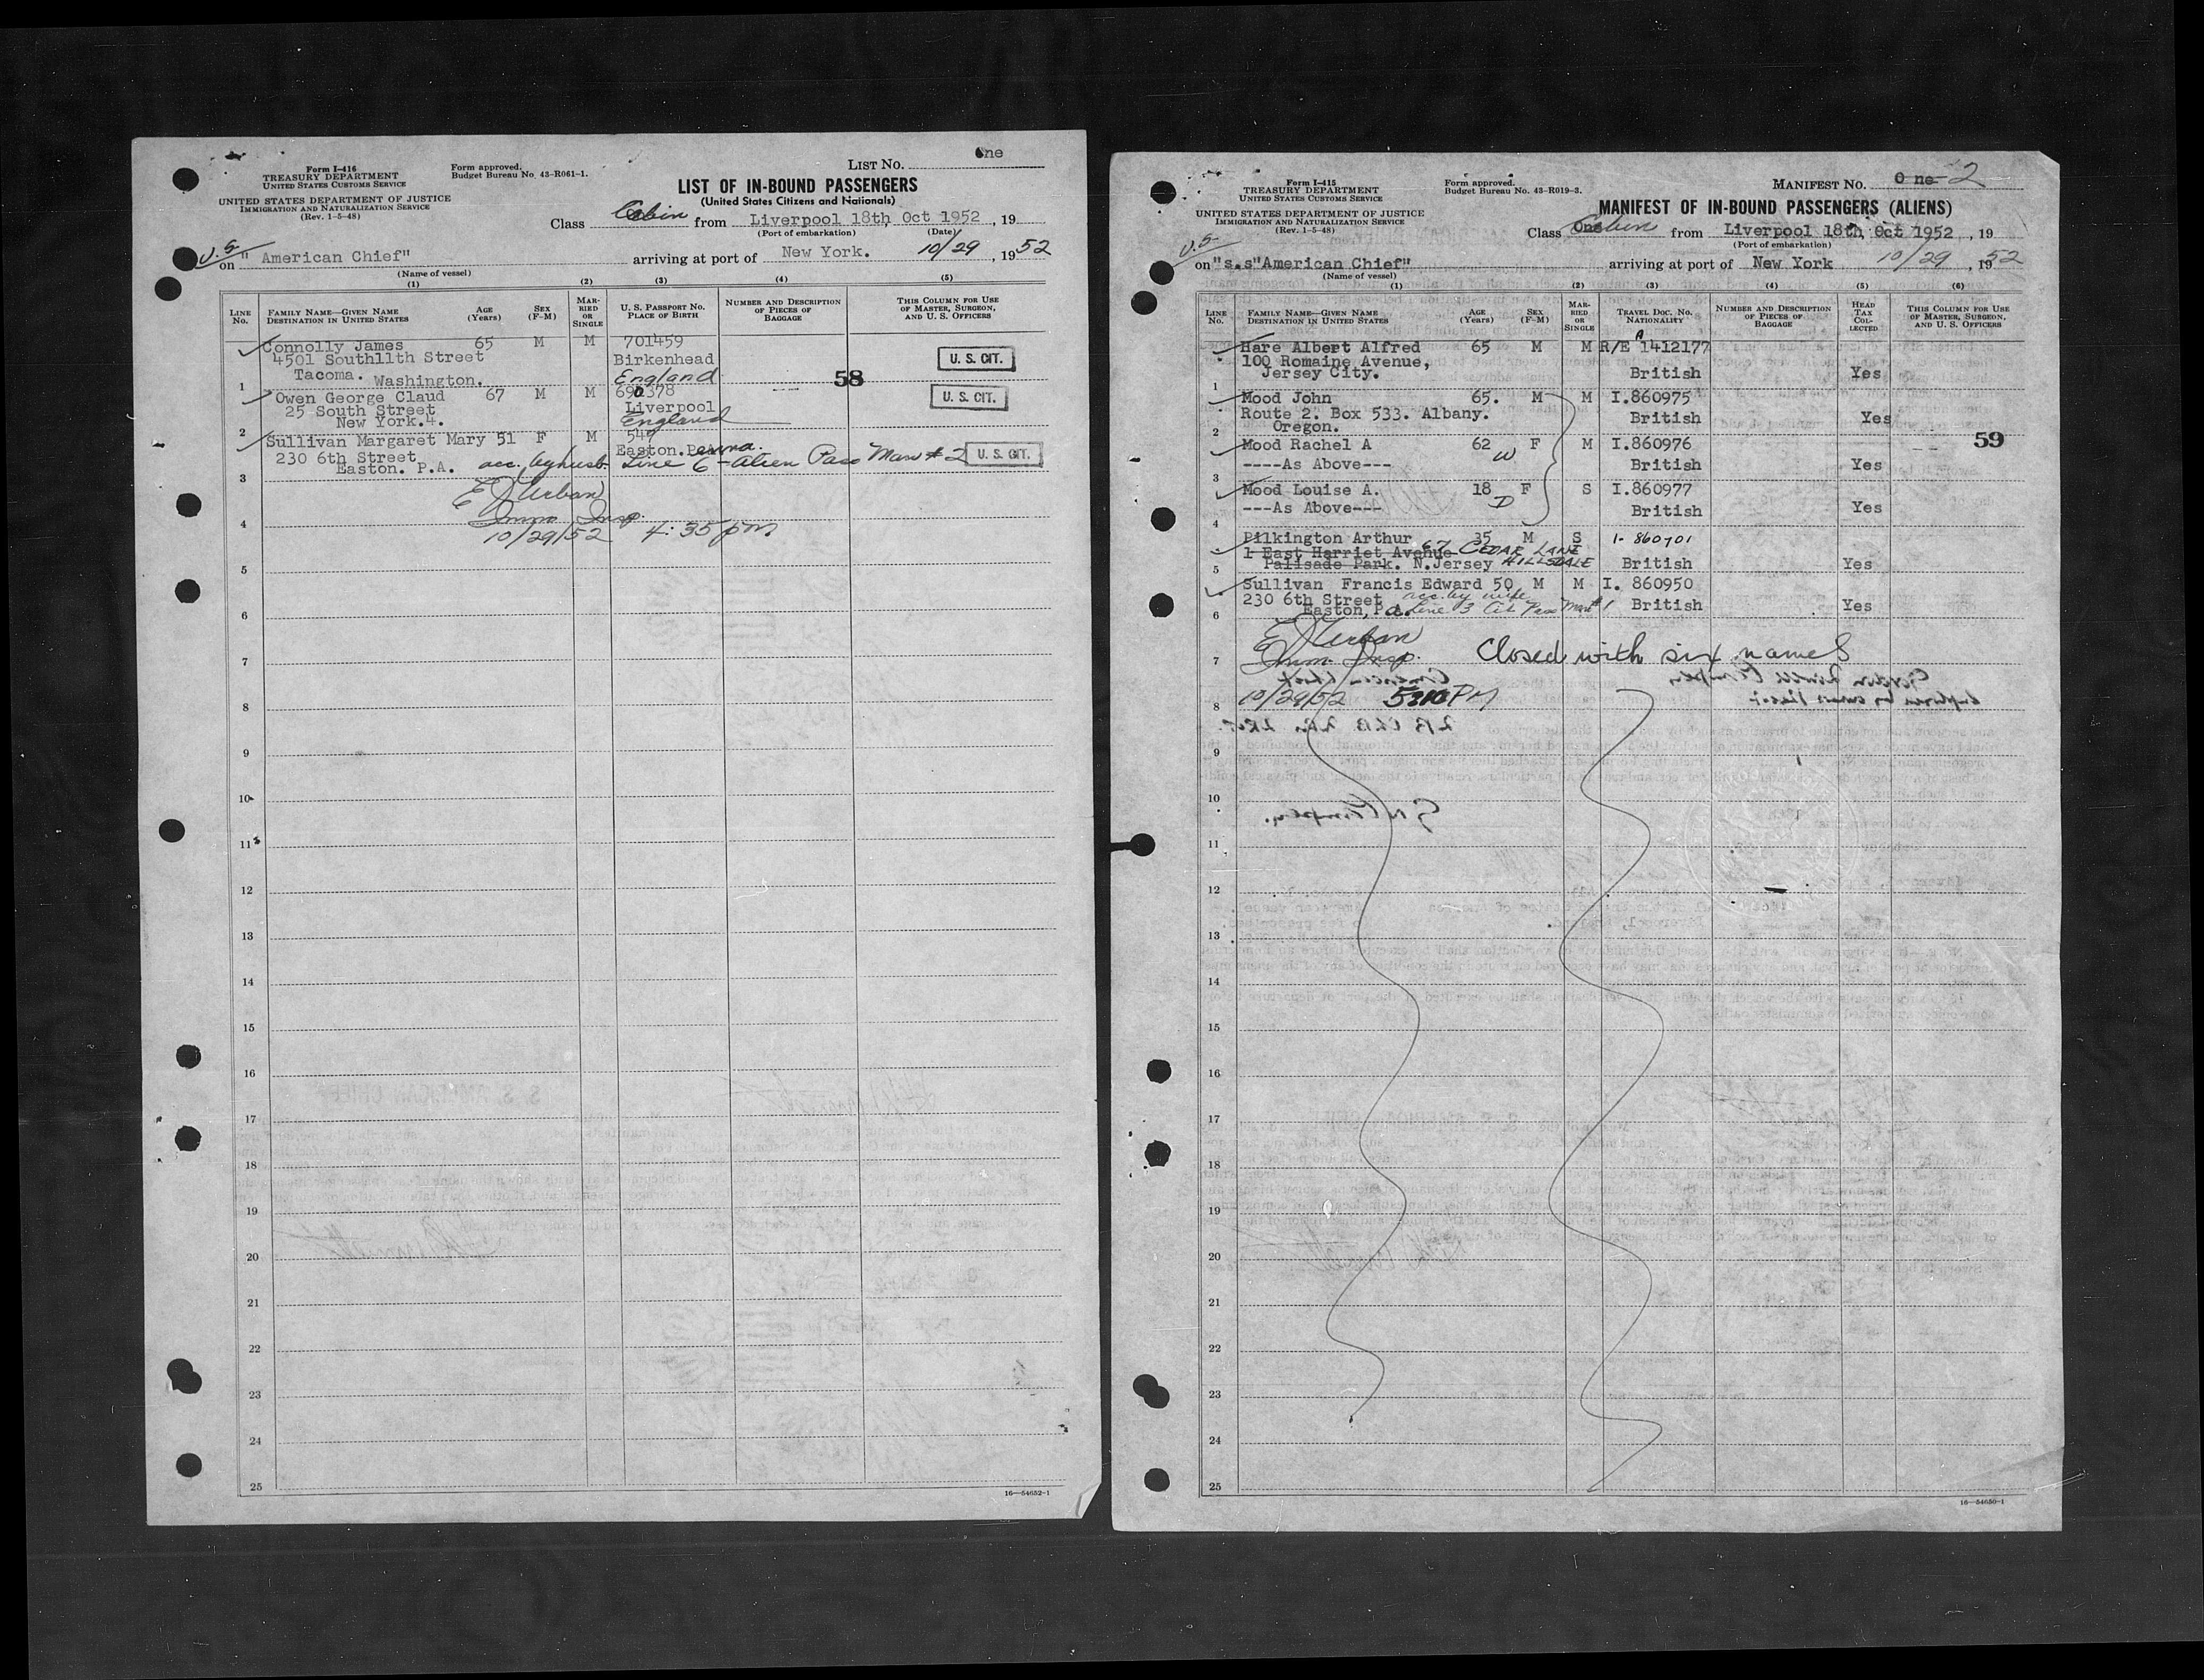 Form I-416
TREASURY DEPARTMENT
UNITED STATES CUSTOMS SERVICE
UNITED STATES DEPARTMENT OF JUSTICE
IMMIGRATION AND NATURALIZATION SERVICE
(Rev. 1-5-48)
Form approved.
Budget Bureau No. 43-R061-1.
LIST NO. One
LIST OF IN-BOUND PASSENGERS
(United States Citizens and Nationals)
Class Cabin from Liverpool 18th, Oct 1952, 19
(Port of embarkation) (Date)
U.S.
on " American Chief" arriving at port of New York. 10/29, 1952
(Name of vessel)
(1) (2) (3) (4) (5)
LINE No. FAMILY NAME—GIVEN NAME DESTINATION IN UNITED STATES AGE (Years) SEX (F-M) MARRIED OR SINGLE U. S. PASSPORT No. PLACE OF BIRTH NUMBER AND DESCRIPTION OF PIECES OF BAGGAGE THIS COLUMN FOR USE OF MASTER, SURGEON, AND U. S. OFFICERS
Connolly James 65 M M 701459
4501 South11th Street Birkenhead U. S. CIT.
Tacoma. Washington. England 58
1
Owen George Claud 67 M M 690378 U. S. CIT.
25 South Street Liverpool
New York.4. England
2
Sullivan Margaret Mary 51 F M 549
230 6th Street Easton. Penna.
Easton. P.A. acc. by husb. Line 6 - alien Pass Man # 2 U. S. CIT.
3
E J Urban
Imm Insp.
4
10/29/52 4:35 pm
5
6
7
8
9
10
11
12
13
14
15
16
17
18
19
20
21
22
23
24
25
16—54652-1
Form I-415
TREASURY DEPARTMENT
UNITED STATES CUSTOMS SERVICE
UNITED STATES DEPARTMENT OF JUSTICE
IMMIGRATION AND NATURALIZATION SERVICE
(Rev. 1-5-48)
Form approved.
Budget Bureau No. 43-R019-3.
MANIFEST NO. One 2
MANIFEST OF IN-BOUND PASSENGERS (ALIENS)
Class One Cabin from Liverpool 18th, Oct 1952, 19
(Port of embarkation)
U.S.
on "s.s"American Chief" arriving at port of New York 10/29, 1952
(Name of vessel)
(1) (2) (3) (4) (5) (6)
LINE No. FAMILY NAME—GIVEN NAME DESTINATION IN UNITED STATES AGE (Years) SEX (F-M) MARRIED OR SINGLE TRAVEL DOC. NO. NATIONALITY NUMBER AND DESCRIPTION OF PIECES OF BAGGAGE HEAD TAX COLLECTED THIS COLUMN FOR USE OF MASTER, SURGEON, AND U. S. OFFICERS
Hare Albert Alfred 65 M M R/E A 1412177
100 Romaine Avenue,
Jersey City. British Yes
1
Mood John 65. M M I.860975
Route 2. Box 533. Albany. British Yes
Oregon.
2
Mood Rachel A 62 W F M I.860976 59
----As Above--- British Yes
3
Mood Louise A. 18 D F S I.860977
---As Above--- British Yes
4
Pilkington Arthur 35 M S 1-860701
1 East Harriet Avenue 67 CEDAR LANE
Palisade Park. N.Jersey HILLSDALE British Yes
5
Sullivan Francis Edward 50 M M I. 860950
230 6th Street acc. by wife
Easton, Pa. Line 3 Cit Pass Man # 1 British Yes
6
E J Urban
Imm. Insp. Closed with six names
7
10/29/52 5:10 PM
8
9
10
11
12
13
14
15
16
17
18
19
20
21
22
23
24
25
16—54650-1